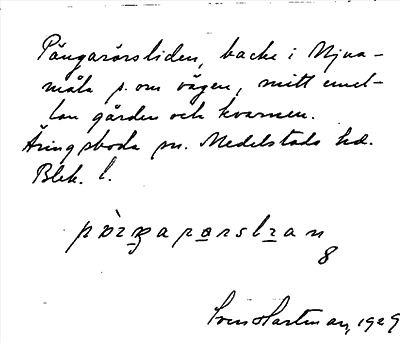 Pängarörsliden, backe i Mjua-
måla s. om vägen, mitt emel-
lan gården och kvarnen.
Äringsboda sn. Medelstads hd.
Blek. l.
8
Sven Hartman, 1929